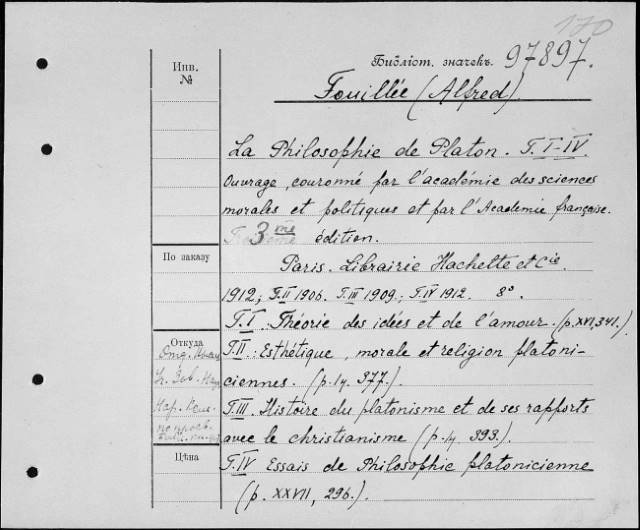 170
Библіот. значекъ 97897.
Инв.
№
Fouillée (Alfred).
La Philosophie de Platon. T. I-IV.
Ouvrage, couronné par l'académie des sciences
morales et politiques et par l'Academie française.
3me édition.
По заказу
Paris. Librairie Hachette et Cie.
1912; T.II 1906. T.III 1909.; T.IV 1912. 8°.
T.I. Théorie des idées et de l'amour. (p. XVI, 341.)
Откуда
T.II: Esthétique, morale et religion platoni-
ciennes. (p. 377.)
T.III. Histoire du platonisme et de ses rapports
avec le christianisme (p. 393.)
Цѣна
T.IV Essais de Philosophie platonicienne
(p. XXVII, 296.)